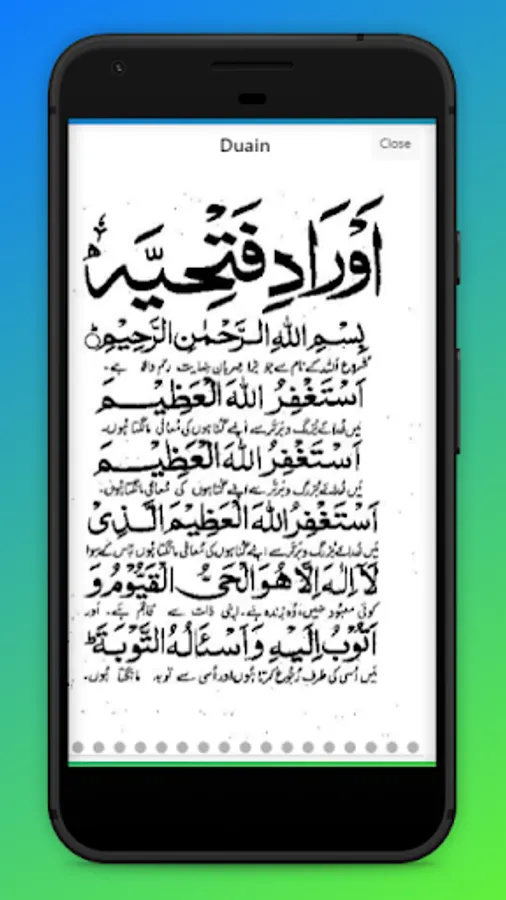 Duain
Close
اَوْرَادِ فَتْحِیَّہ
بِسْمِ اللهِ الرَّحْمٰنِ الرَّحِیْمِ
شروع اللہ کے نام سے جو بڑا مہربان نہایت رحم والا ہے۔
اَسْتَغْفِرُ اللهَ الْعَظِیْمَ
میں خدائے بزرگ و برتر سے اپنے گناہوں کی معافی مانگتا ہوں۔
اَسْتَغْفِرُ اللهَ الْعَظِیْمَ
میں خدائے بزرگ و برتر سے اپنے گناہوں کی معافی مانگتا ہوں۔
اَسْتَغْفِرُ اللهَ الْعَظِیْمَ الَّذِیْ
میں خدائے بزرگ و برتر سے اپنے گناہوں کی معافی مانگتا ہوں جس کے سوا
لَآ اِلٰهَ اِلَّا هُوَ الْحَیُّ الْقَیُّوْمُ وَ
کوئی معبود نہیں، وہ زندہ ہے۔ اپنی ذات سے قائم ہے۔ اور
اَتُوْبُ اِلَیْهِ وَ اَسْئَالُهُ التَّوْبَةَ ط
میں اُسی کی طرف رجوع کرتا ہوں اور اُسی سے توبہ مانگتا ہوں۔